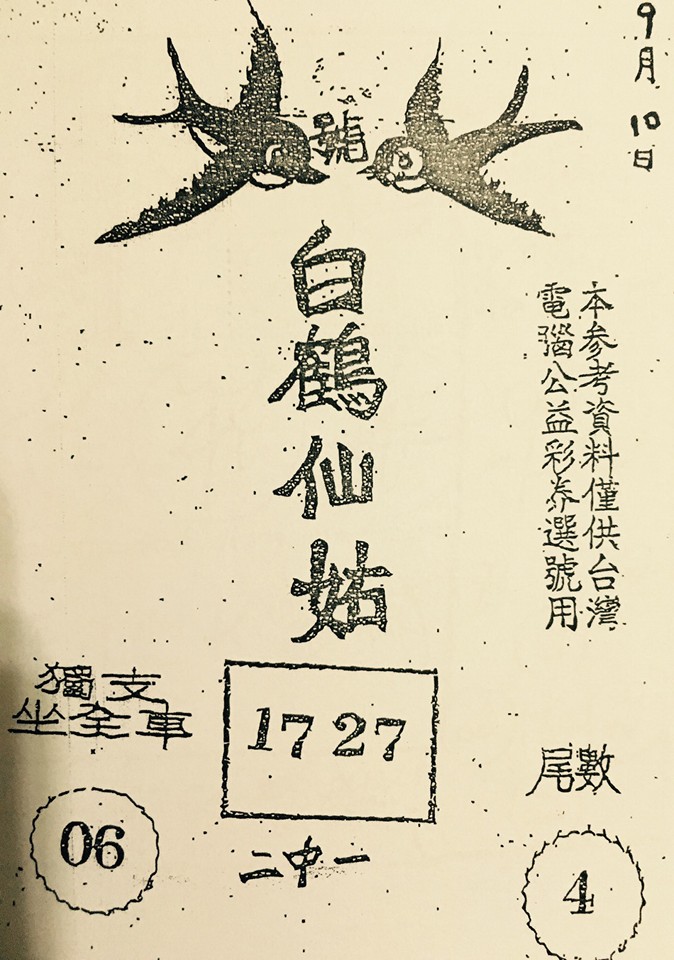 9月10日
號
白鶴仙姑
本參考資料僅供台灣
電腦公益彩券選號用
獨支
坐全車
06
17 27
二中一
尾數
4